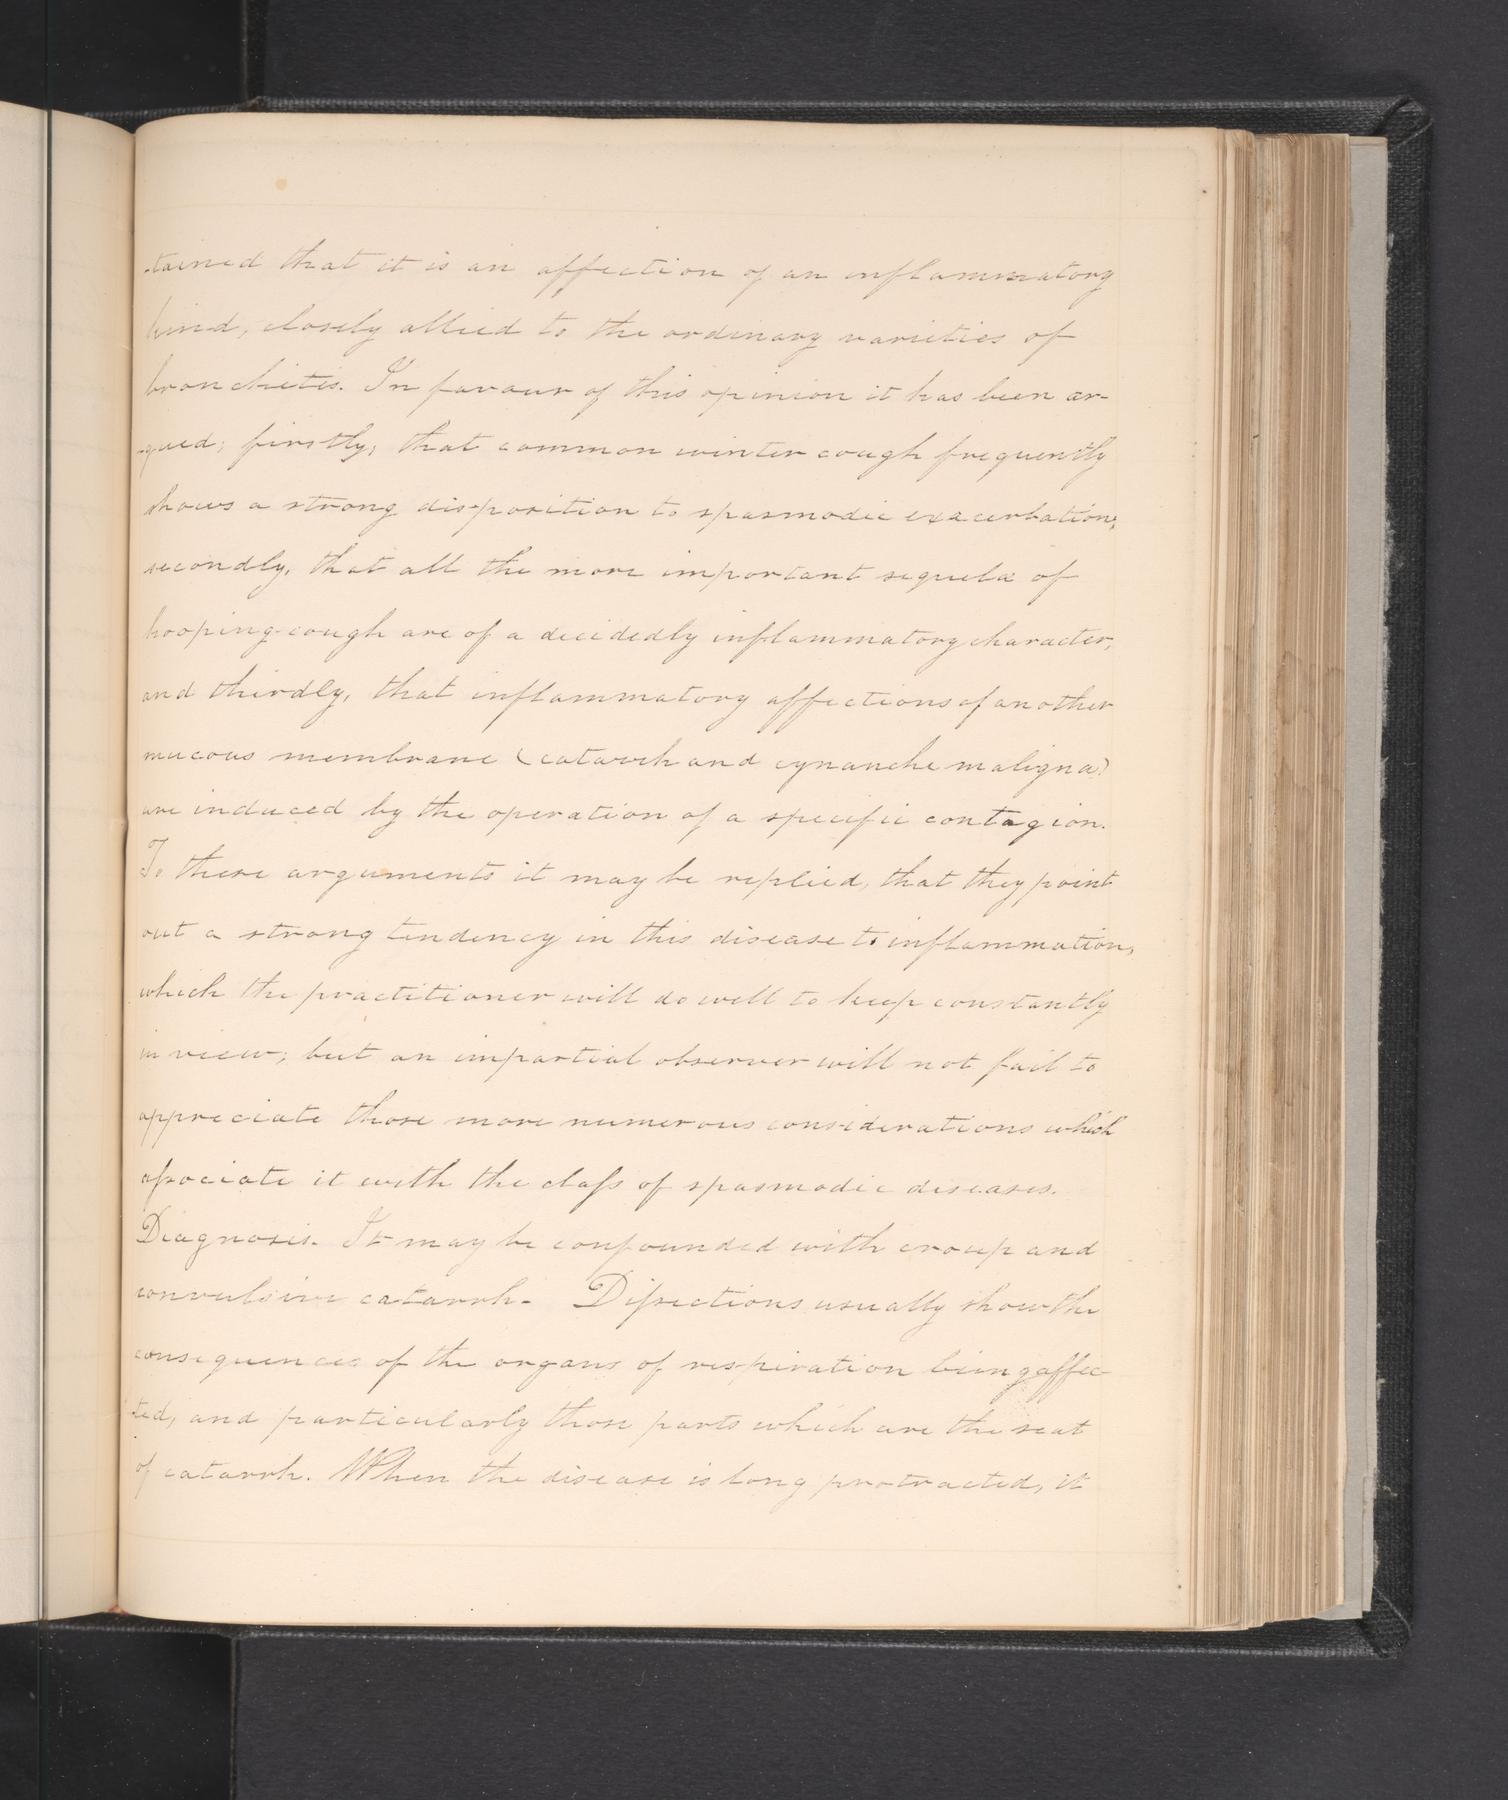 -tained that it is an affection of an inflammatory
kind, closely allied to the ordinary varieties of
bronchitis. In favour of this opinion it has been ar-
-gued; firstly, that common winter cough frequently
shows a strong disposition to spasmodic exacerbation,
secondly, that all the more important sequelæ of
hooping-cough are of a decidedly inflammatory character,
and thirdly, that inflammatory affections of another
mucous membrane (catarrh and cynanche maligna)
are induced by the operation of a specific contagion.
To these arguments it may be replied, that they point
out a strong tendency in this disease to inflammation,
which the practitioner will do well to keep constantly
in view; but an impartial observer will not fail to
appreciate those more numerous considerations which
aſsociate it with the claſs of spasmodic diseases.
Diagnosis. It may be confounded with croup and
convulsive catarrh. Diſsections usually show the
consequences of the organs of respiration being affec-
ted, and particularly those parts which are the seat
of catarrh. When the disease is long protracted, it